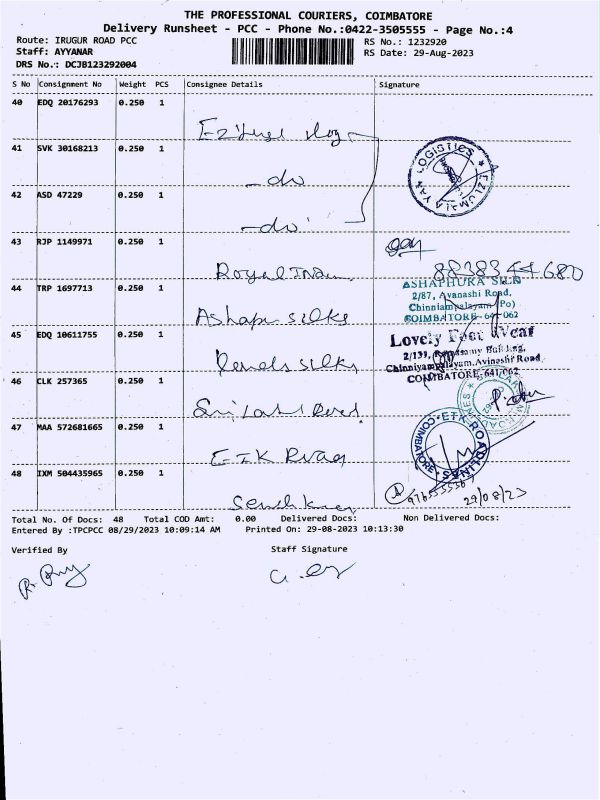 THE PROFESSIONAL COURIERS, COIMBATORE
Delivery Runsheet - PCC - Phone No.:0422-3505555 - Page No.:4
Route: IRUGUR ROAD PCC
RS No.: 1232920
Staff: AYYANAR
RS Date: 29-Aug-2023
DRS No.: DCJB123292004
S No Consignment No Weight PCS Consignee Details Signature
40 EDQ 20176293 0.250 1
41 SVK 30168213 0.250 1
LOGISTICS
- do
42 ASD 47229 0.250 1
- do
43 RJP 1149971 0.250 1
8838344680
Royal
44 TRP 1697713 0.250 1
ASHAPHUKA SILK
2/87, Avanashi Road,
Chinniampalayam (Po)
COIMBATORE- 641 062
silks
45 EDQ 10611755 0.250 1
Lovely Foot Wear
Chinniyampalayam, Avinashi Road
COIMBATORE-641 062
silks
46 CLK 257365 0.250 1
47 MAA 572681665 0.250 1
COIMBATORE
ETK
48 IXM 504435965 0.250 1
29/08/23
Total No. Of Docs: 48 Total COD Amt: 0.00 Delivered Docs: Non Delivered Docs:
Entered By :TPCPCC 08/29/2023 10:09:14 AM Printed On: 29-08-2023 10:13:30
Verified By Staff Signature